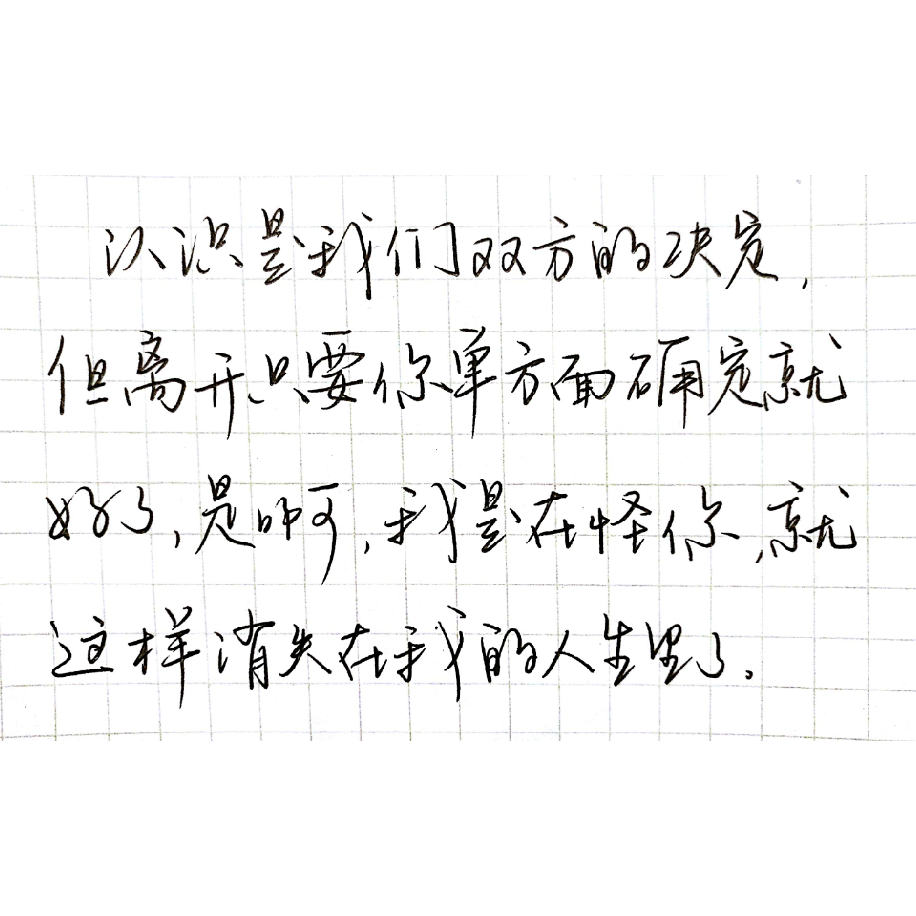 认识是我们双方的决定,
但离开只要你单方面确定就
好了,是啊,我是在怪你,就
这样消失在我的人生里了。